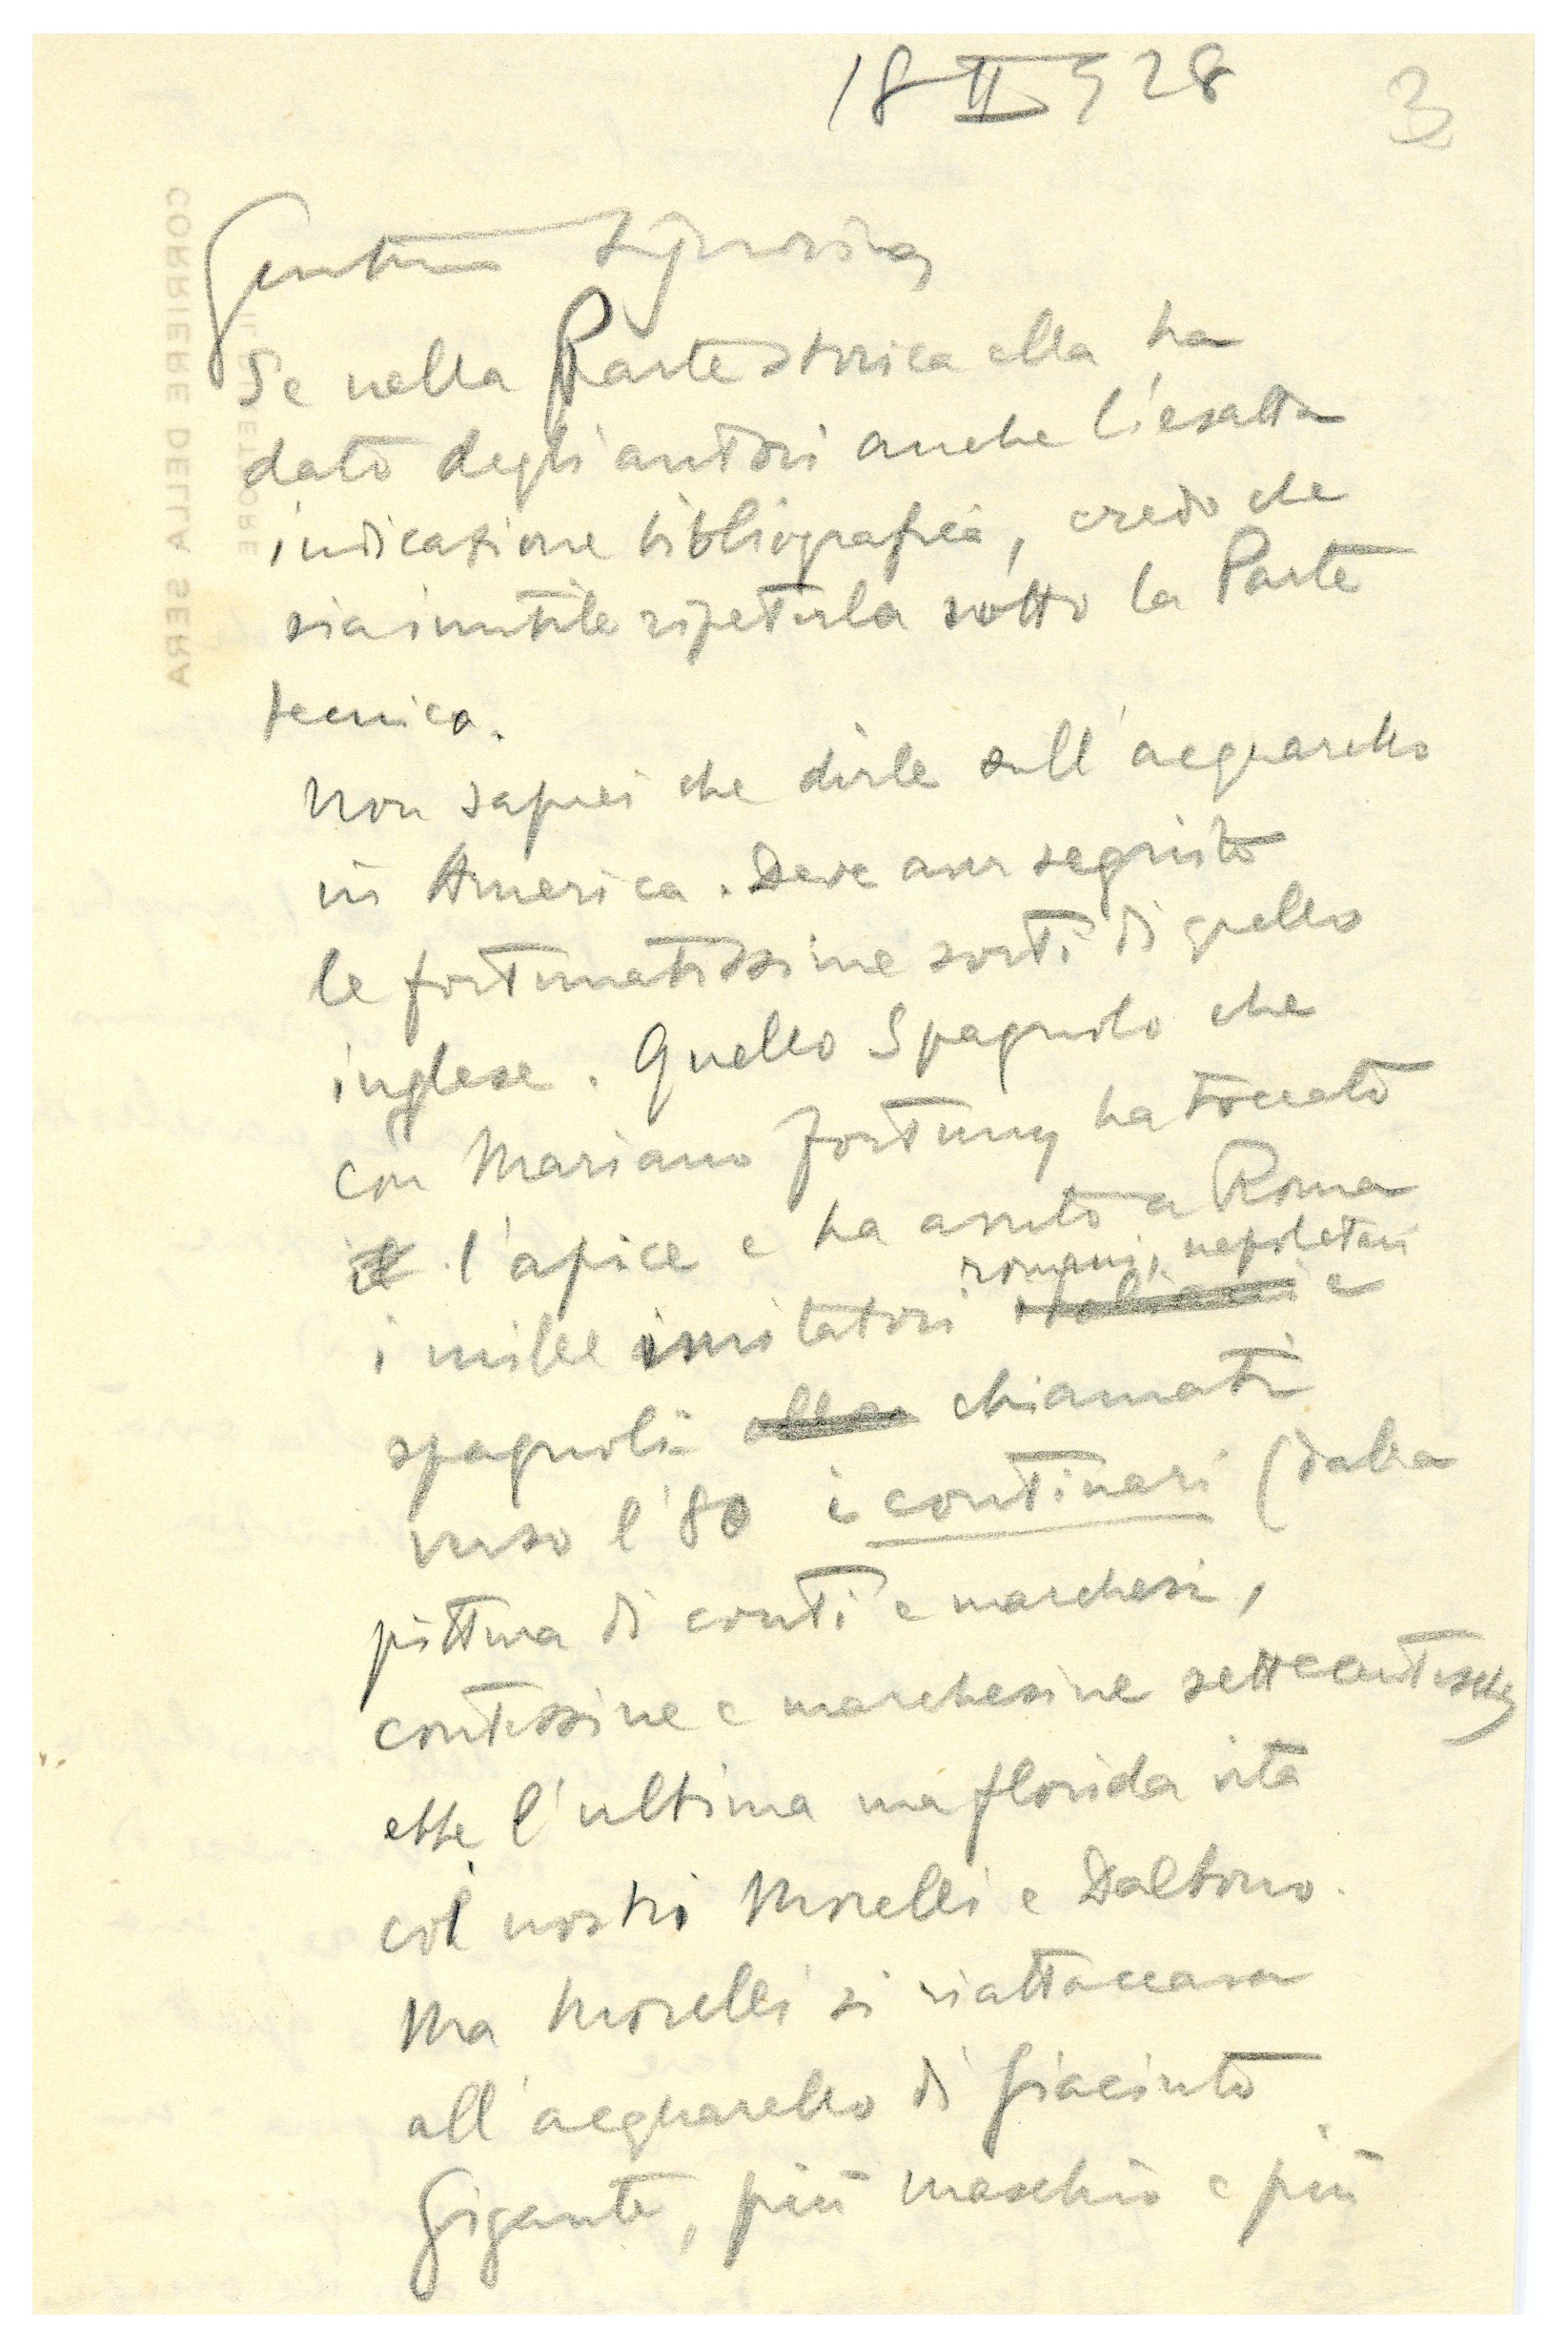 18 II 928
3
CORRIERE DELLA SERA
IL DIRETTORE
Gentma Signorina,
Se nella Parte storica ella ha
dato degli autori anche l'esatta
indicazione bibliografica, credo che
sia inutile ripeterla sotto la Parte
tecnica.
Non saprei che dirle sull'acquarello
in America. Deve aver seguito
le fortunatissime sorti di quello
inglese. Quello Spagnolo che
con Mariano Fortuny ha toccato
il l'apice e ha avuto a Roma
romani, napoletani
i mille imitatori italiani e
spagnoli allora chiamati
verso l'80 i continari (dalla
pittura di conti e marchesi,
contessine e marchesine settecentesche,
ebbe l'ultima ma florida vita
coi nostri Morelli e Dalbono.
Ma Morelli si riattaccava
all'acquarello di Giacinto
Gigante, più maschio e più